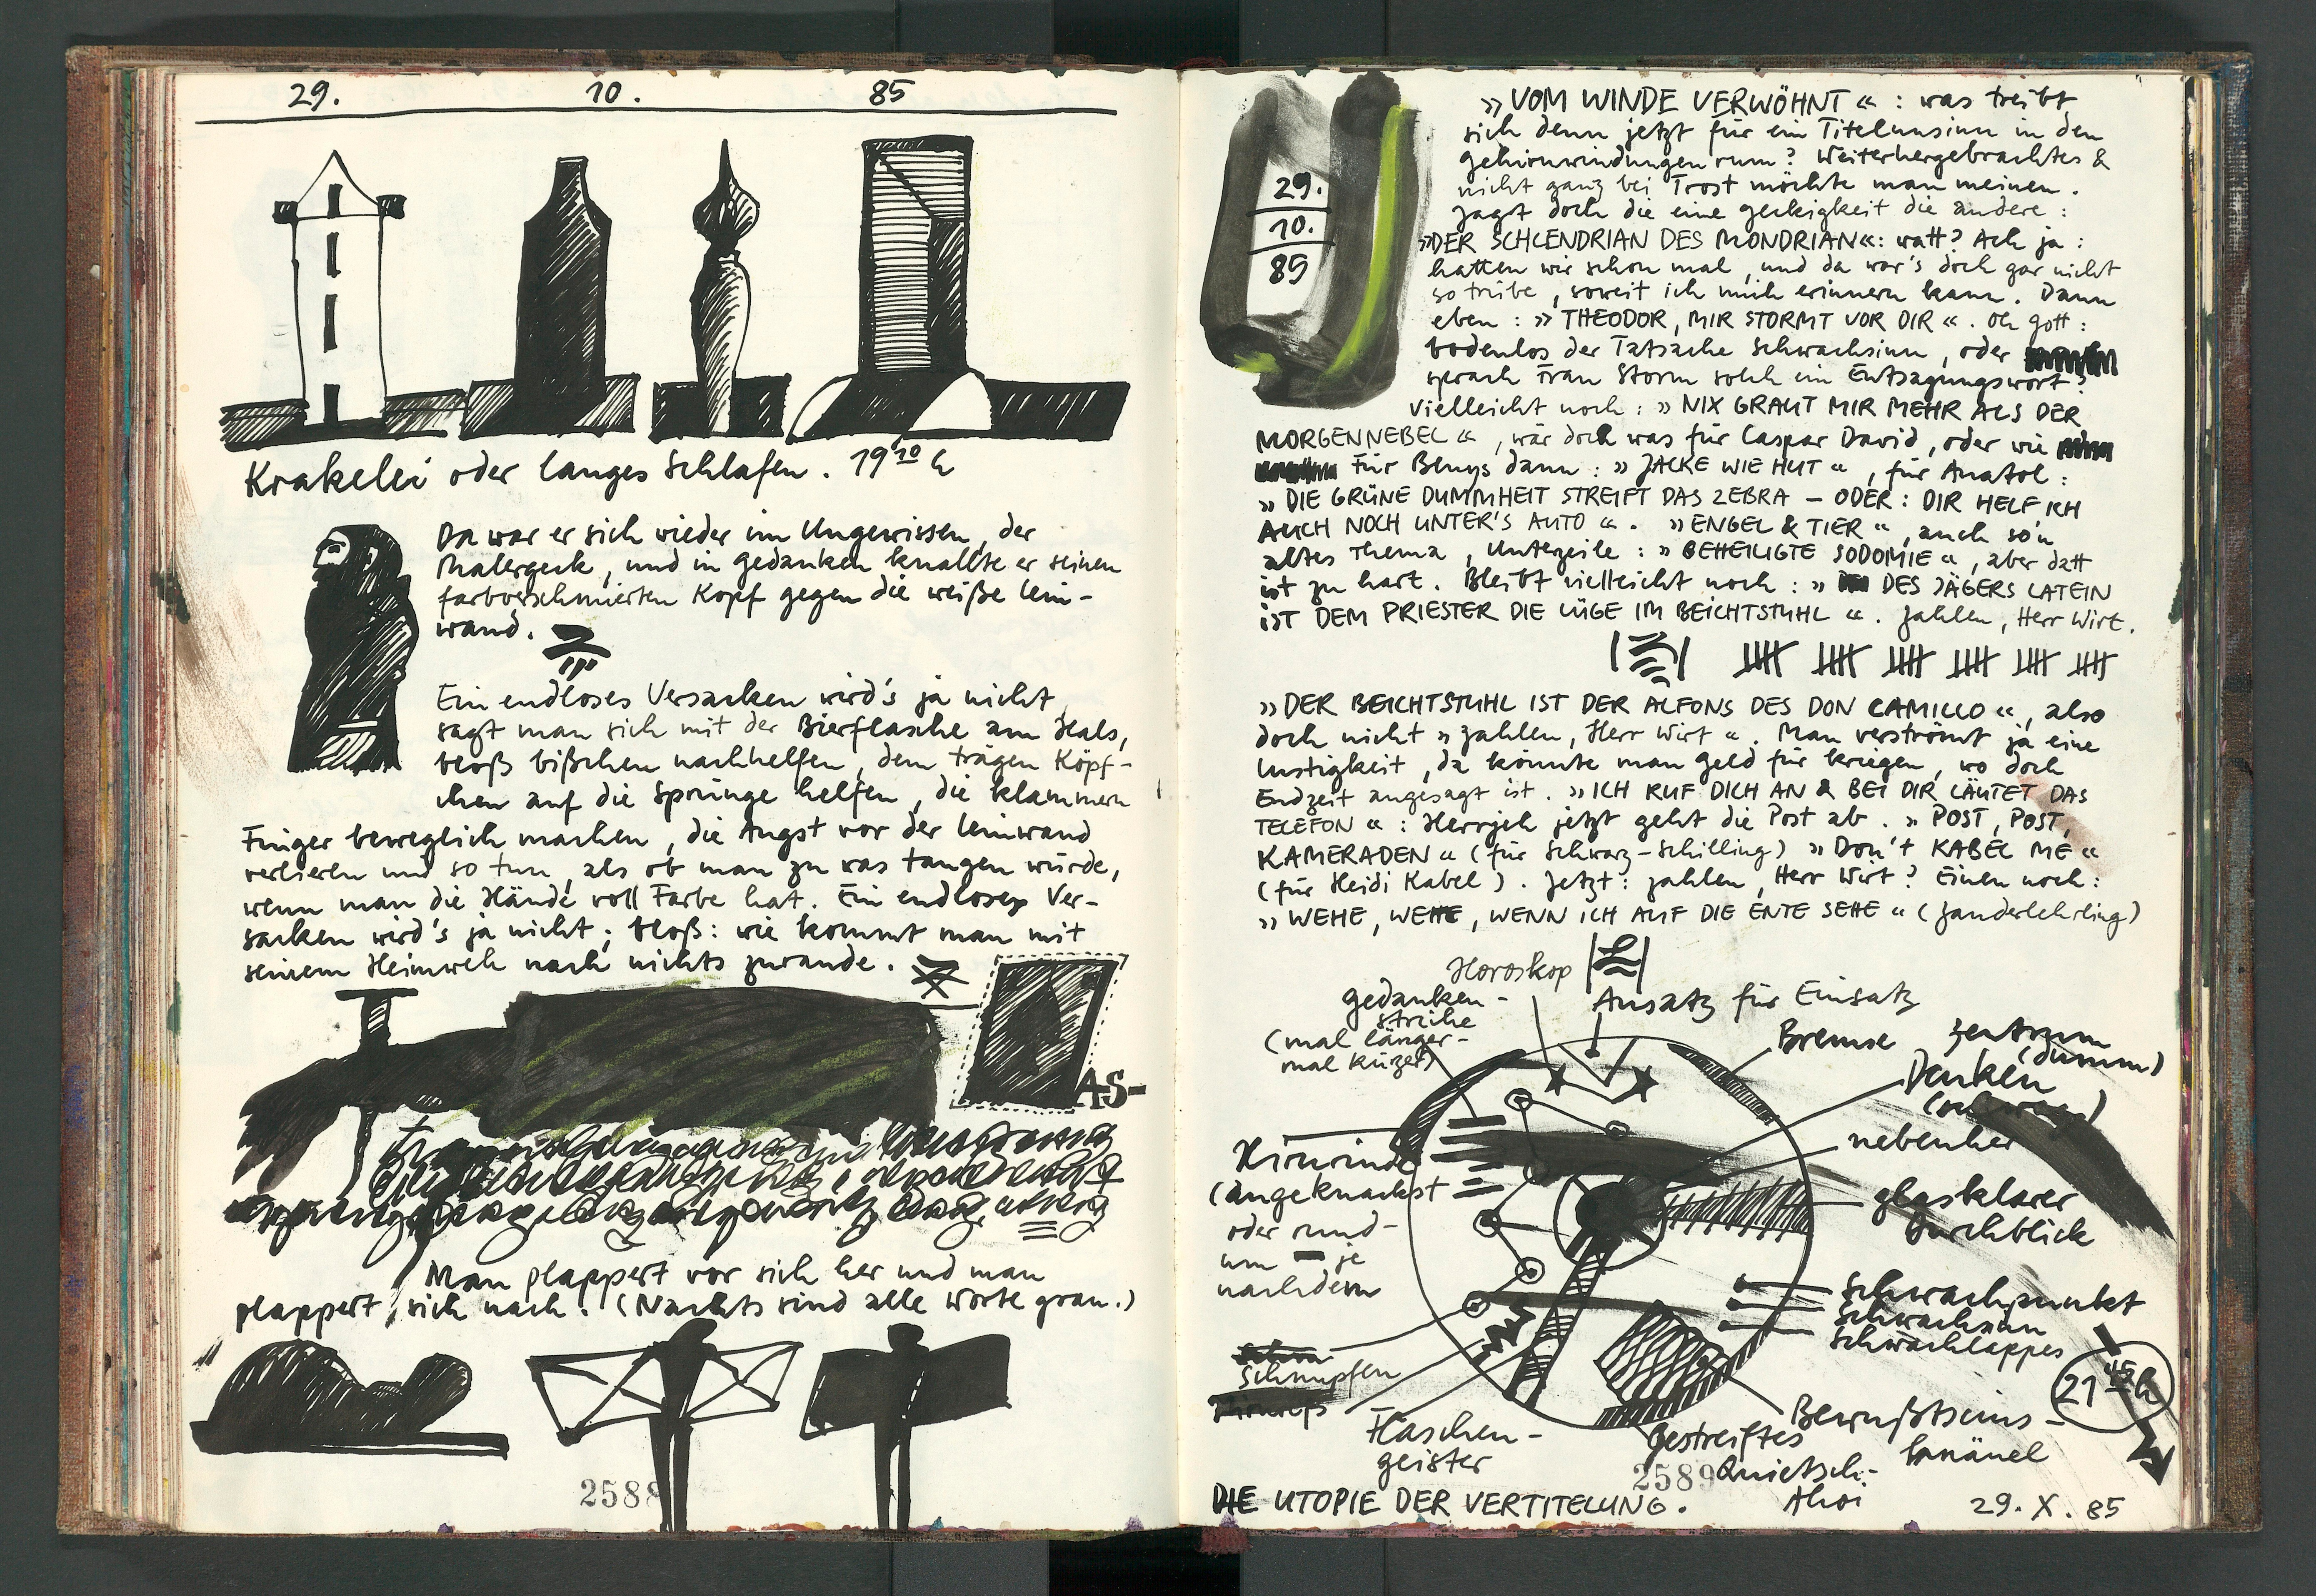 29. 10. 85
Krakelei oder langes Schlafen. 19 10 h
Da war er sich wieder im Ungewissen, der
Malergeck, und in gedanken knallte er seinen
farbverschmierten Kopf gegen die weiße lein-
wand.
Ein endloses Versacken wird's ja nicht,
sagt man sich mit der Bierflasche am Hals,
bloß bißchen nachhelfen, dem trägen Köpf-
chen auf die Sprünge helfen, die klammern
Finger beweglich machen, die Angst vor der leinwand
verlieren und so tun, als ob man zu was taugen würde,
wenn man die Hände voll Farbe hat. Ein endloses Ver-
sacken wird's ja nicht; bloß: wie kommt man mit
seinem Heimweh nach nichts zurande.
AS-
Man plappert vor sich her und man
plappert sich nach. (Nachts sind alle Worte grau.)
2588
29.
10.
85
»VOM WINDE VERWÖHNT«: was treibt
sich denn jetzt für ein Titelunsinn in den
gehirnwindungen rum? Weiterhergebrachtes &
nicht ganz bei Trost möchte man meinen.
Jagt doch die eine geckigkeit die andere:
»DER SCHLENDRIAN DES MONDRIAN«: watt? Ach ja:
hatten wir schon mal, und da war's doch gar nicht
so trübe, soweit ich mich erinnern kann. Dann
eben: »THEODOR, MIR STORMT VOR DIR«. Oh gott:
bodenlos der Tatsache Schwachsinn, oder
sprach Frau Storm solch ein Entsagungswort?
Vielleicht noch: »NIX GRAUT MIR MEHR ALS DER
MORGENNEBEL«, wär doch was für Caspar David, oder wie
Für Beuys dann: »JACKE WIE HUT«, für Anatol:
»DIE GRÜNE DUMMHEIT STREIFT DAS ZEBRA – ODER: DIR HELF ICH
AUCH NOCH UNTER'S AUTO«. »ENGEL & TIER«, auch so'n
altes Thema, Unterzeile: »BEHEILIGTE SODOMIE«, aber datt
ist zu hart. Bleibt vielleicht noch: » DES JÄGERS LATEIN
IST DEM PRIESTER DIE LÜGE IM BEICHTSTUHL«. Zahlen, Herr Wirt.
»DER BEICHTSTUHL IST DER ALFONS DES DON CAMILLO«, also
doch nicht »Zahlen, Herr Wirt«. Man verströmt ja eine
lustigkeit, da könnte man geld für kriegen, wo doch
Endzeit angesagt ist. »ICH RUF DICH AN & BEI DIR LÄUTET DAS
TELEFON«: Herrjeh jetzt geht die Post ab. »POST, POST,
KAMERADEN« (für Schwarz-Schilling) »Don't KABEL ME«
(für Heidi Kabel). Jetzt: zahlen, Herr Wirt? Einen noch:
»WEHE, WEHE, WENN ICH AUF DIE ENTE SEHE« (Zauderlehrling)
Horoskop
gedanken-
striche
(mal länger-
mal kürzer)
Ansatz für Einsatz
Bremse
Zentrum
(dumm)
Denken
nebenher
Hirnrinde
(angeknackst
oder rund-
um – je
nachdem
glasklarer
Durchblick
Schwachpunkt
Schwachsinn
Schwachlappes
21 45 h
Schnupfen
Flaschen-
geister
gestreiftes
Quietsch-
Ahoi
Bewußtseins-
knäuel
2589
DIE UTOPIE DER VERTITELUNG.
29. X. 85